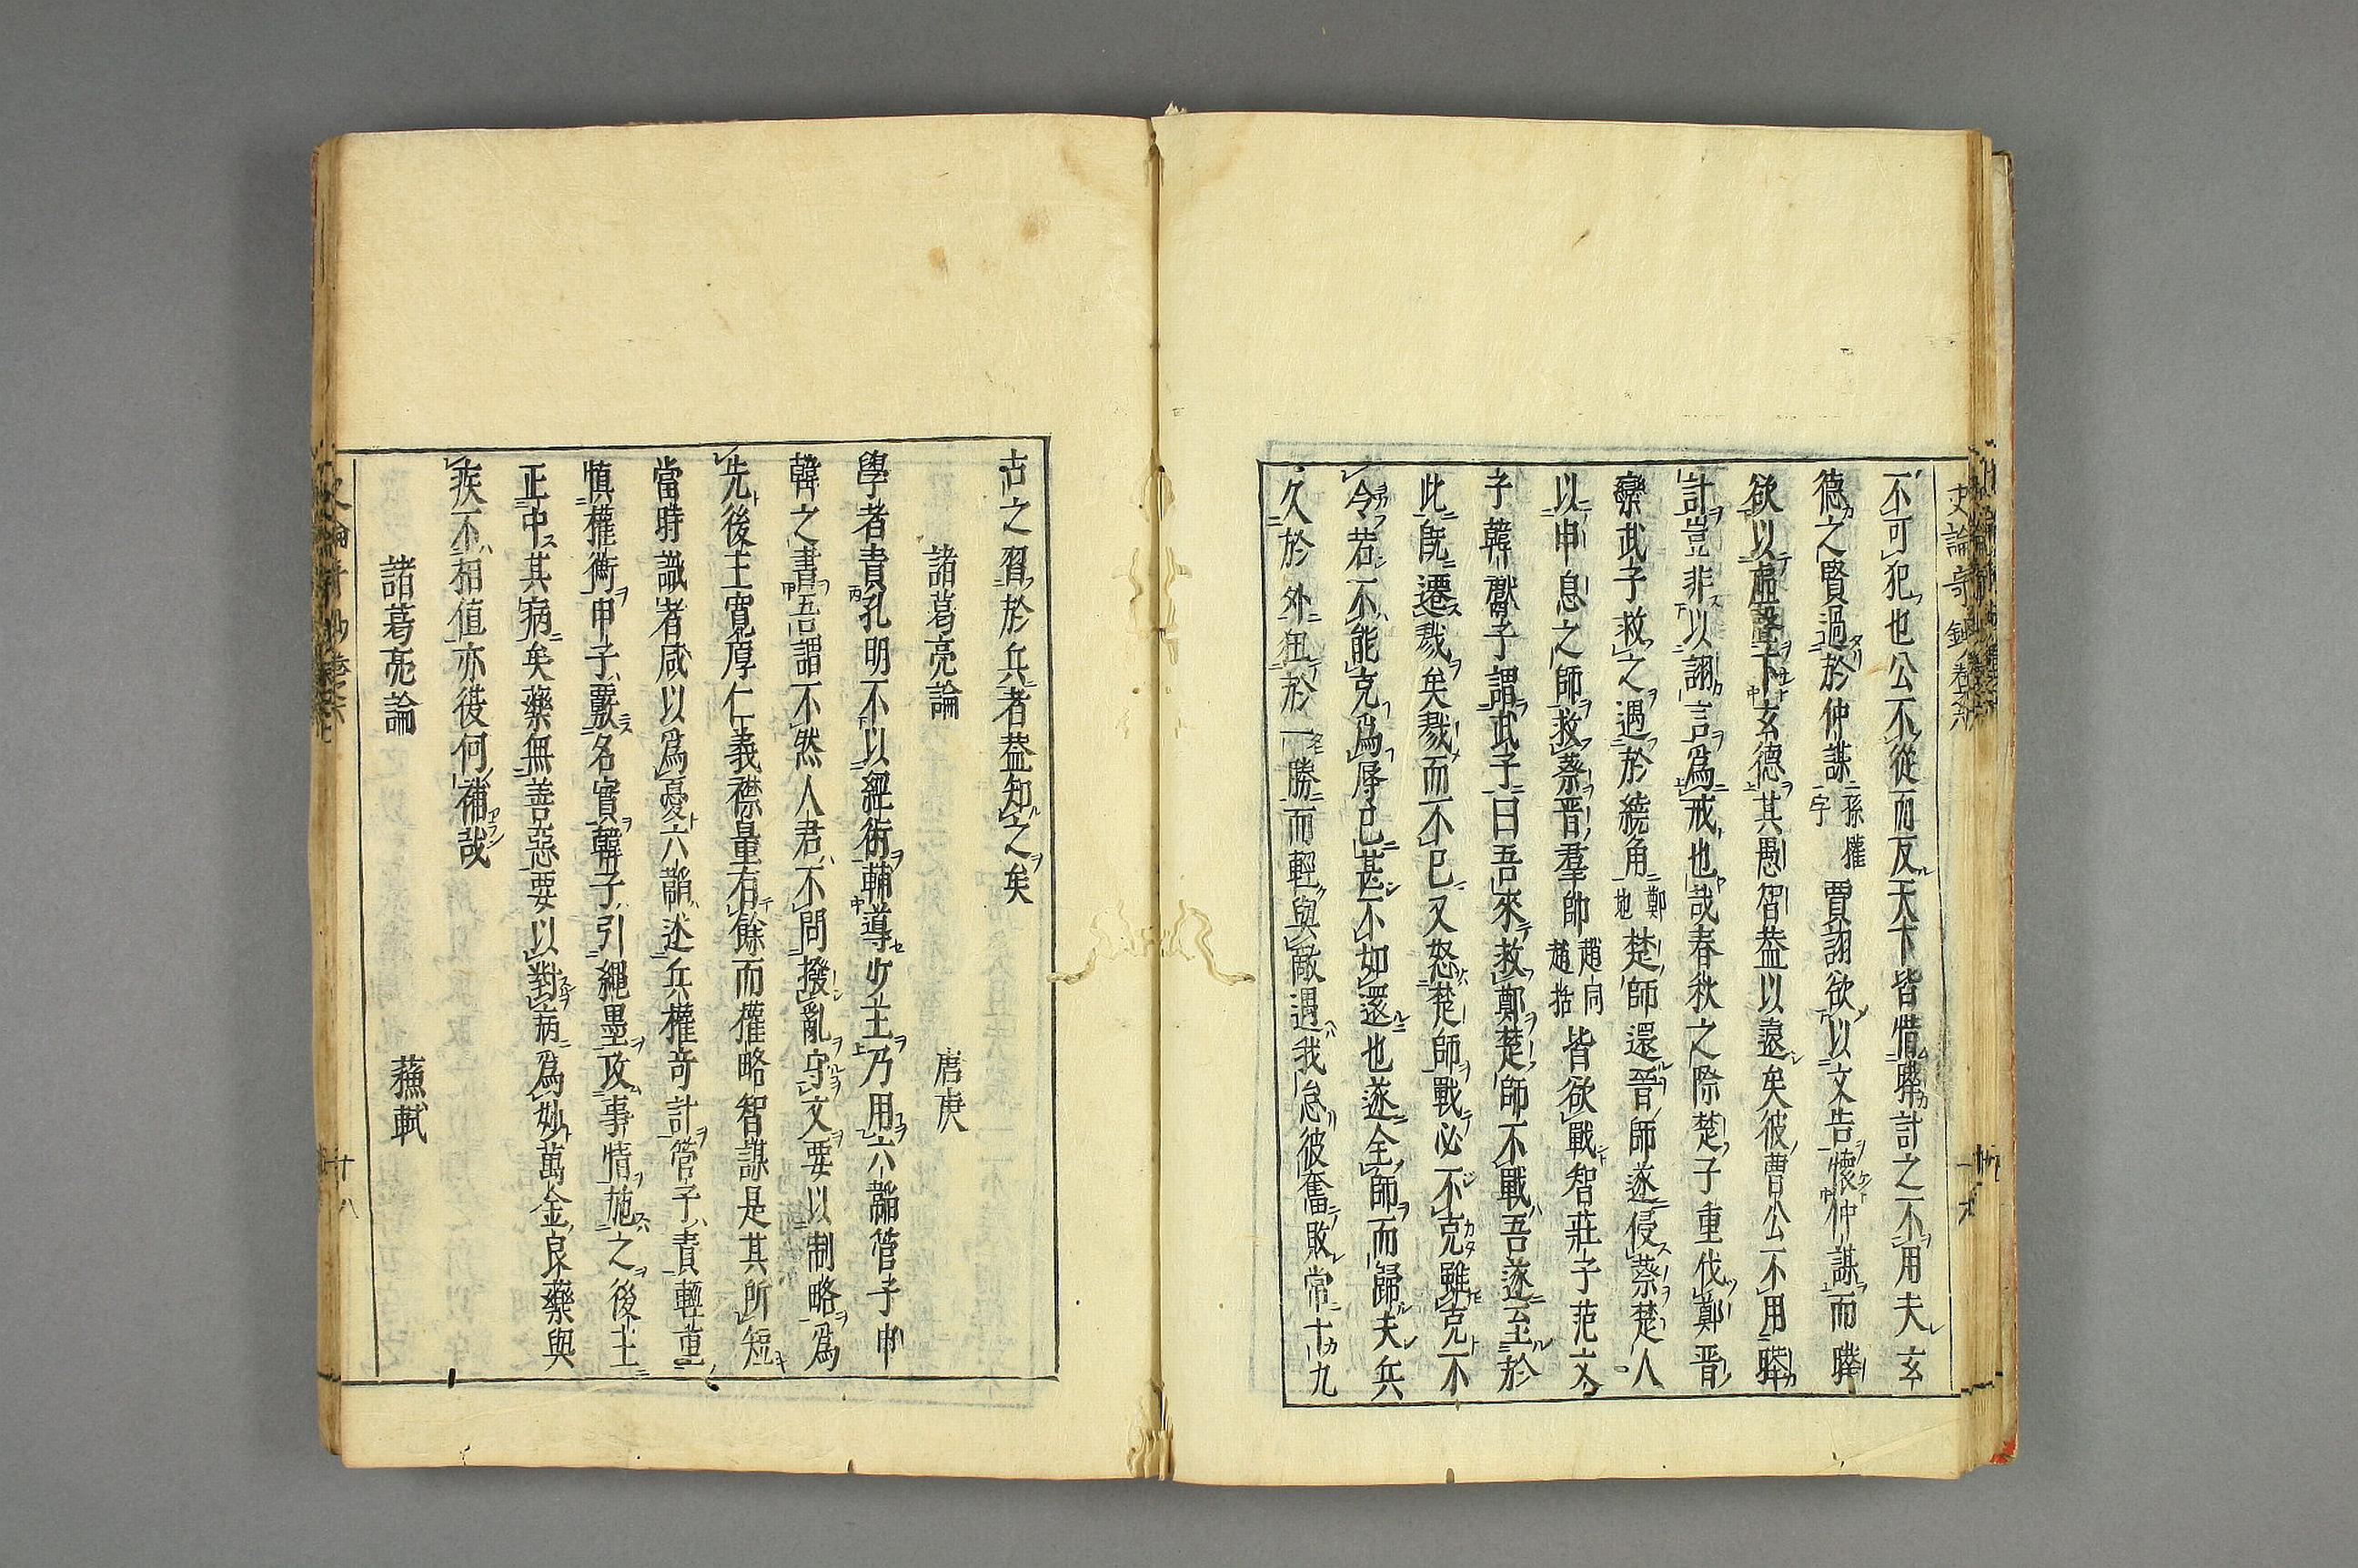 不可犯也公不從而反天下皆惜曄計之不用夫玄
德之賢過於仲謀孫權字賈詡欲以文告懷仲謀而曄
欲以虛聲下玄德其愚智葢以遠矣彼曹公不用曄
計豈非以詡言爲戒也哉春秋之際楚子重伐鄭晉
欒武子救之遇於繞角鄭地楚師還晉師遂侵蔡楚人
以申息之師救蔡晉羣帥趙同趙括皆欲戰智莊子范文
子韓獻子謂武子曰吾來救鄭楚師不戰吾遂至於
此旣遷戮矣戮而不已又怒楚師戰必不克雖克不
令若不能克爲辱已甚不如還也遂全師而歸夫兵
久於外狃於一勝而輕與敵遇我怠彼奮敗常十九
古之習於兵者葢知之矣
諸葛亮論 唐庚
學者責孔明不以經術輔導少主乃用六韜管子申
韓之書吾謂不然人君不問撥亂守文要以制略爲
先後主寬厚仁義襟量有餘而權略智謀是其所短
當時識者咸以爲憂六韜述兵權奇計管子責輕重
愼權衡申子覈名實韓子引繩墨攻事情施之後主
正中其病矣藥無善惡要以對病爲妙萬金良藥與
疾不相值亦徒何補哉
諸葛亮論 蘇軾
十八